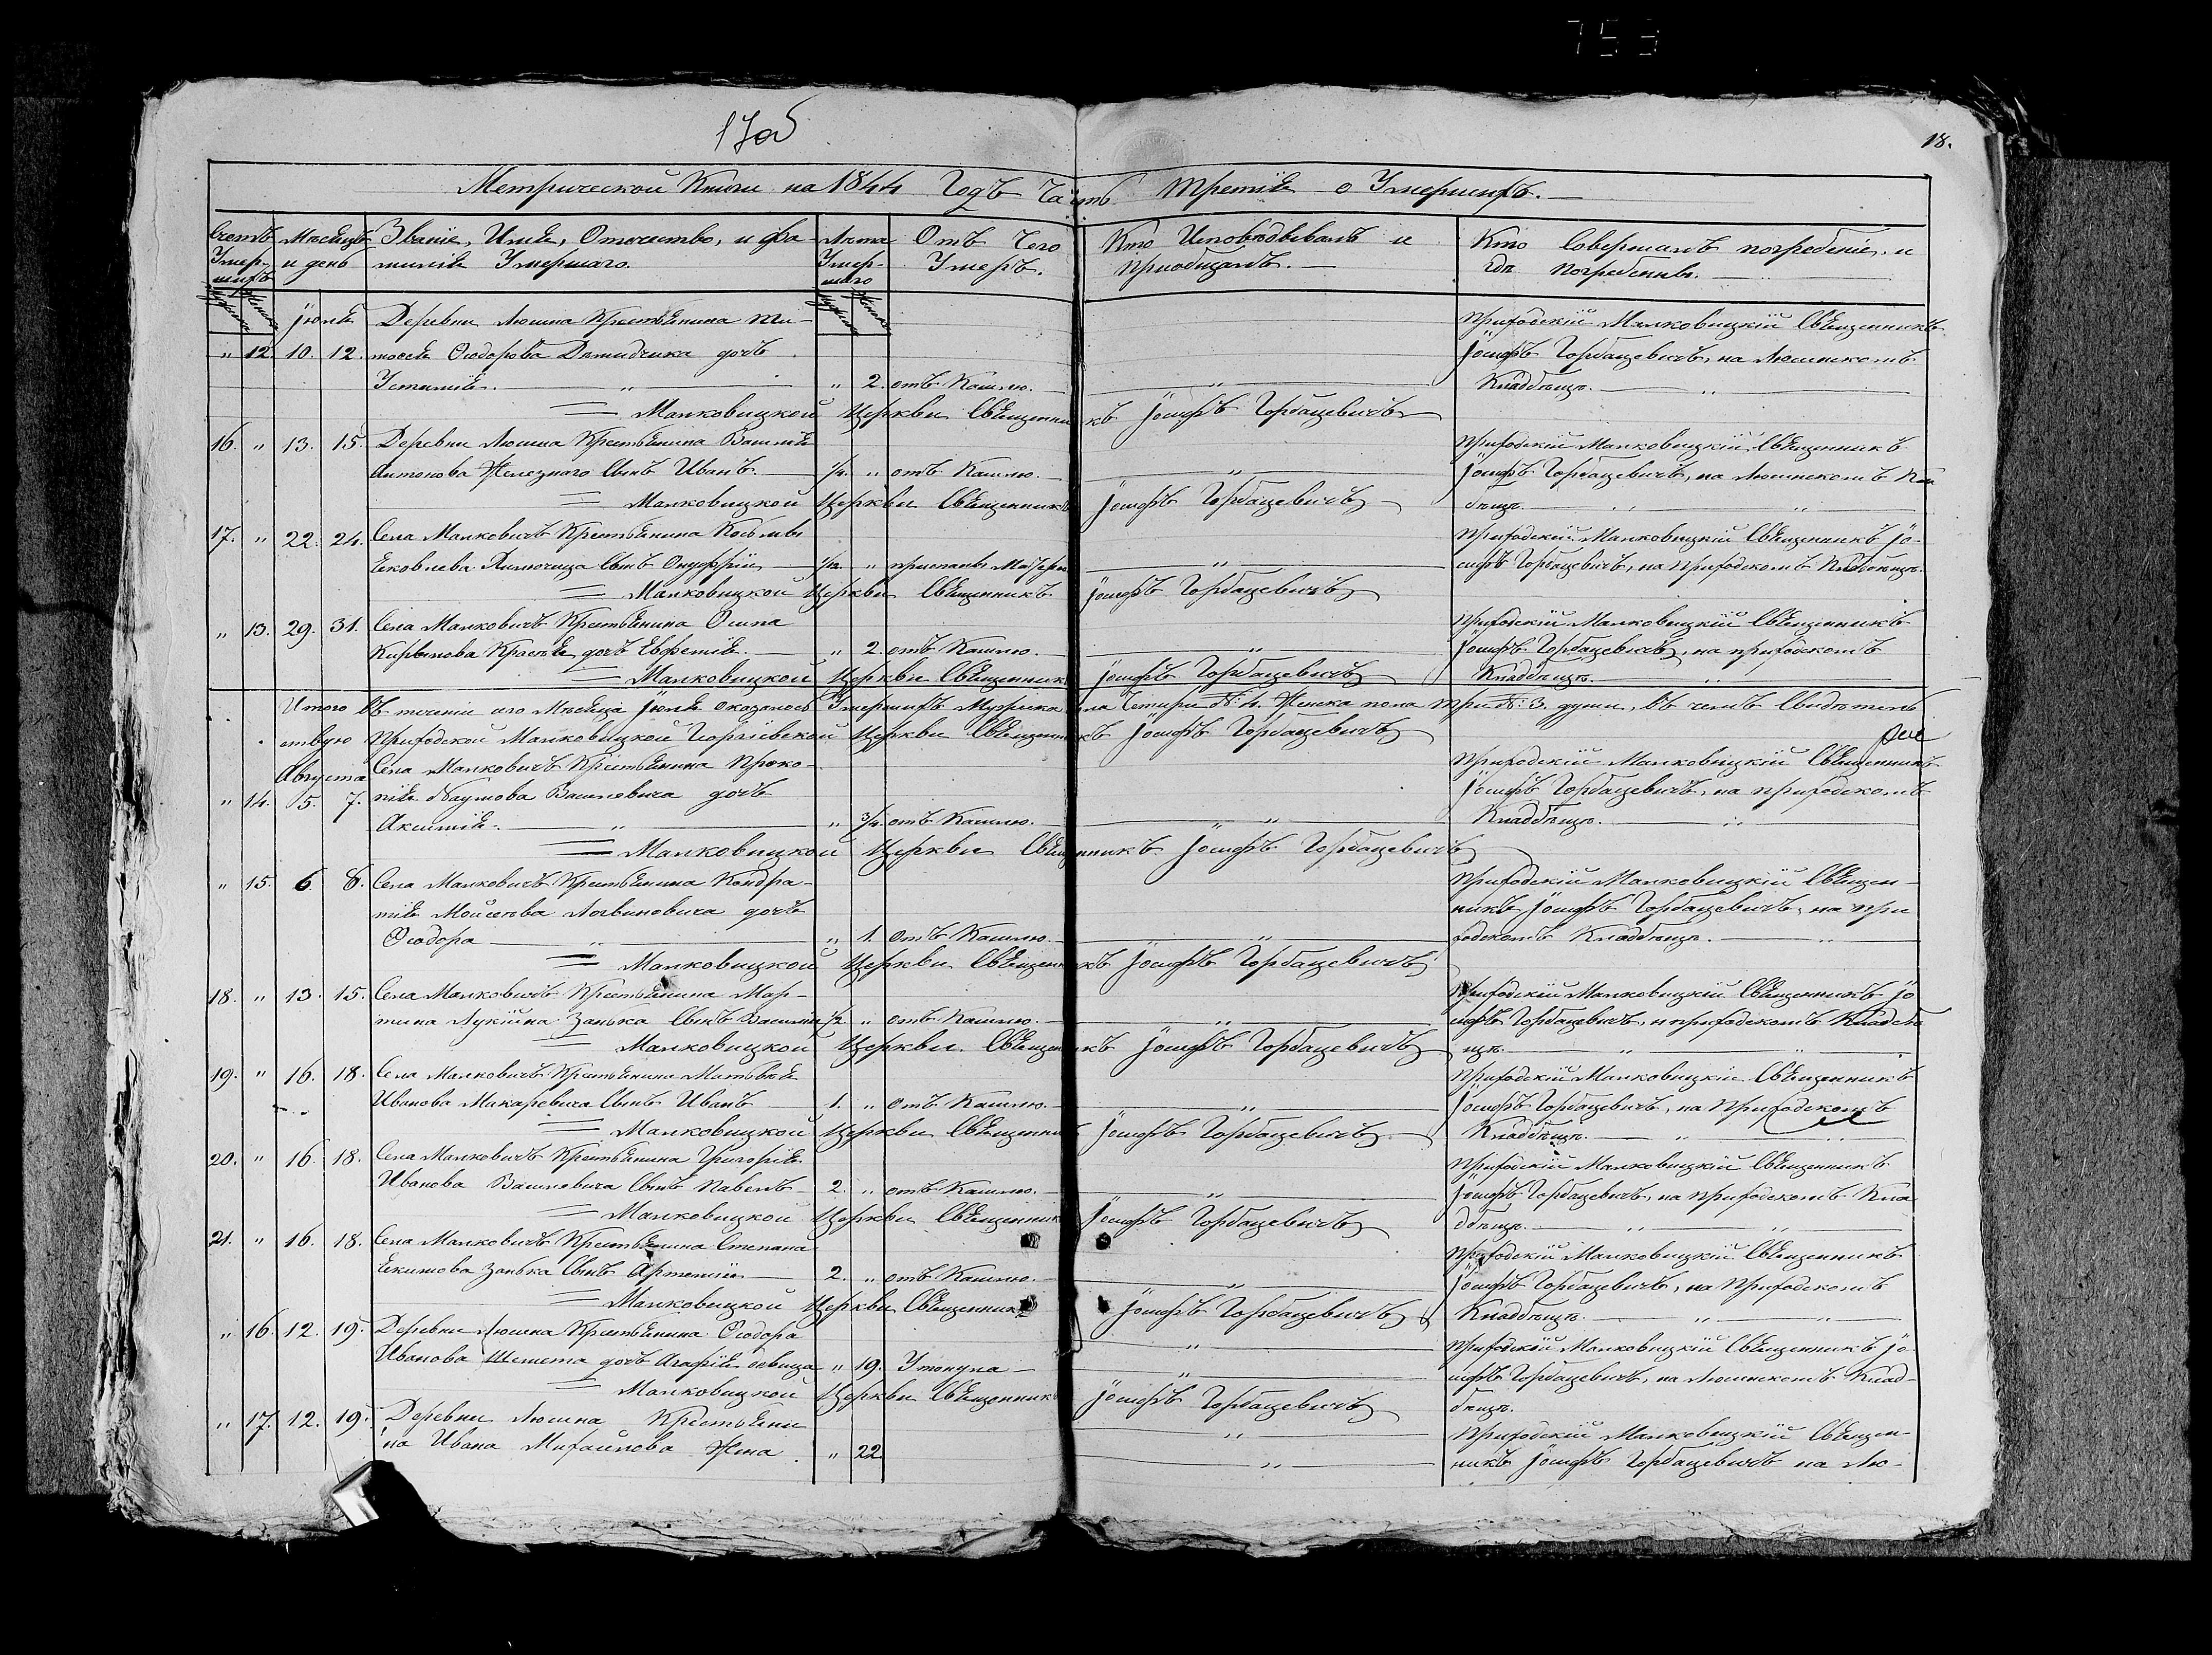 753
17об
18.
Метрической Книги на 1844 Годъ Часть Третія о Умершихъ.
Счетъ Умершихъ
Мѣсяцъ и день
Званіе, Имя, Отчество, и фамилія Умершаго.
Лѣта Умершаго
Отъ Чего Умеръ.
Кто Исповѣдывалъ и Приобщалъ.
Кто Совершалъ погребеніе, и гдѣ Погребены.
Іюля Деревни Люшна Крестьянина Ти- Приходскій Малковицкій Священникъ
„ 12. 10. 12. мофея Ѳюдорова Демидчика дочь Іосифъ Горбацевичъ, на Люшнскомъ
Устинія. „ „ 2. отъ Кашлю. „ Кладбѣщѣ. „
Малковицкой Церкви Священникъ Іосифъ Горбацевичъ
16. „ 13. 15. Деревни Люшна Крестьянина Василія Приходскій Малковицкій Священникъ
Антонова Железного Сынъ Иванъ. 1/4. „ отъ Кашлю. „ Іосифъ Горбацевичъ, на Люшнскомъ Кла
Малковицкой Церкви Священникъ Іосифъ Горбацевичъ дбѣщѣ. „ „
17. „ 22. 24. Села Малковичъ Крестьянина Косьмы Приходскій Малковицкій Священникъ Іо-
Яковлева Сынъ Онуфрій 1/12. „ приспанъ Матерью „ сифъ Горбацевичъ, на Приходскомъ Кладбѣщѣ.
Малковицкой Церкви Священникъ Іосифъ Горбацевичъ
„ 13. 29. 31. Села Малковичъ Крестьянина Осипа Приходскій Малковицкій Священникъ
Кирылова дочь Евфемія. „ 2. отъ Кашлю. „ Іосифъ Горбацевичъ, на приходскомъ
Малковицкой Церкви Священникъ Іосифъ Горбацевичъ Кладбѣщѣ. „
Итого въ теченіи сего Мѣсяца Іюля оказалось Умершихъ Мужска пола Четыри №: 4. Женска пола Три №: 3. души, въ чемъ Свидѣтель
ствую Приходской Малковицкой Георгіевской Церкви Священникъ Іосифъ Горбацевичъ
Августа Села Малковичъ Крестьянина Проко- Приходскій Малковицкій Священникъ
„ 14. 5. 7. пія Наумова Василевича дочь Іосифъ Горбацевичъ, на приходскомъ
Аксинія. „ „ 3/4. отъ Кашлю. „ Кладбѣщѣ. „
Малковицкой Церкви Священникъ Іосифъ Горбацевичъ
„ 15. 6. 8. Села Малковичъ Крестьянина Кондра- Приходскій Малковицкій Священ-
тія Мойсеева Логвиновича дочь никъ Іосифъ Горбацевичъ, на При
Ѳюдора „ „ 1. отъ Кашлю. „ ходскомъ Кладбѣщѣ. „
Малковицкой Церкви Священникъ Іосифъ Горбацевичъ
18. „ 13. 15. Села Малковичъ Крестьянина Мар- Приходскій Малковицкій Священникъ Іо
тина Лукіина Занька Сынъ Василій 1/2 „ отъ Кашлю. „ сифъ Горбацевичъ, н приходскомъ Кладбѣ
Малковицкой Церкви Священникъ Іосифъ Горбацевичъ щѣ. „ „
19. „ 16. 18. Села Малковичъ Крестьянина Матвѣя Приходскій Малковицкій Священникъ
Иванова Макаревича Сынъ Иванъ 1. „ отъ Кашлю. „ Іосифъ Горбацевичъ, на Приходскомъ
Малковицкой Церкви Священникъ Іосифъ Горбацевичъ Кладбѣщѣ. „ „
20. „ 16. 18. Села Малковичъ Крестьянина Григорія Приходскій Малковицкій Священникъ
Иванова Василевича Сынъ Павелъ 2. „ отъ Кашлю. „ Іосифъ Горбацевичъ, на приходскомъ Кла
Малковицкой Церкви Священникъ Іосифъ Горбацевичъ дбѣщѣ. „ „
21. „ 16. 18. Села Малковичъ Крестьянина Степана Приходскій Малковицкій Священникъ
Якимова Занька Сынъ Артемій 2. „ отъ Кашлю. „ Іосифъ Горбацевичъ, на Приходскомъ
Малковицкой Церкви Священникъ Іосифъ Горбацевичъ Кладбѣщѣ. „ „
„ 16. 12. 19. Деревни Люшна Крестьянина Ѳюдора „ Приходскій Малковицкій Священникъ Іо-
Иванова Шемета дочь Агафія девица „ 19. Утонула „ сифъ Горбацевичъ, на Люшнскомъ Клад-
Малковицкой Церкви Священникъ Іосифъ Горбацевичъ бѣщѣ.
„ 17. 12. 19. Деревни Люшна Крестьяни „ Приходскій Малковицкій Священ-
на Ивана Михайлова Жена „ 22 „ никъ Іосифъ Горбацевичъ на Лю-